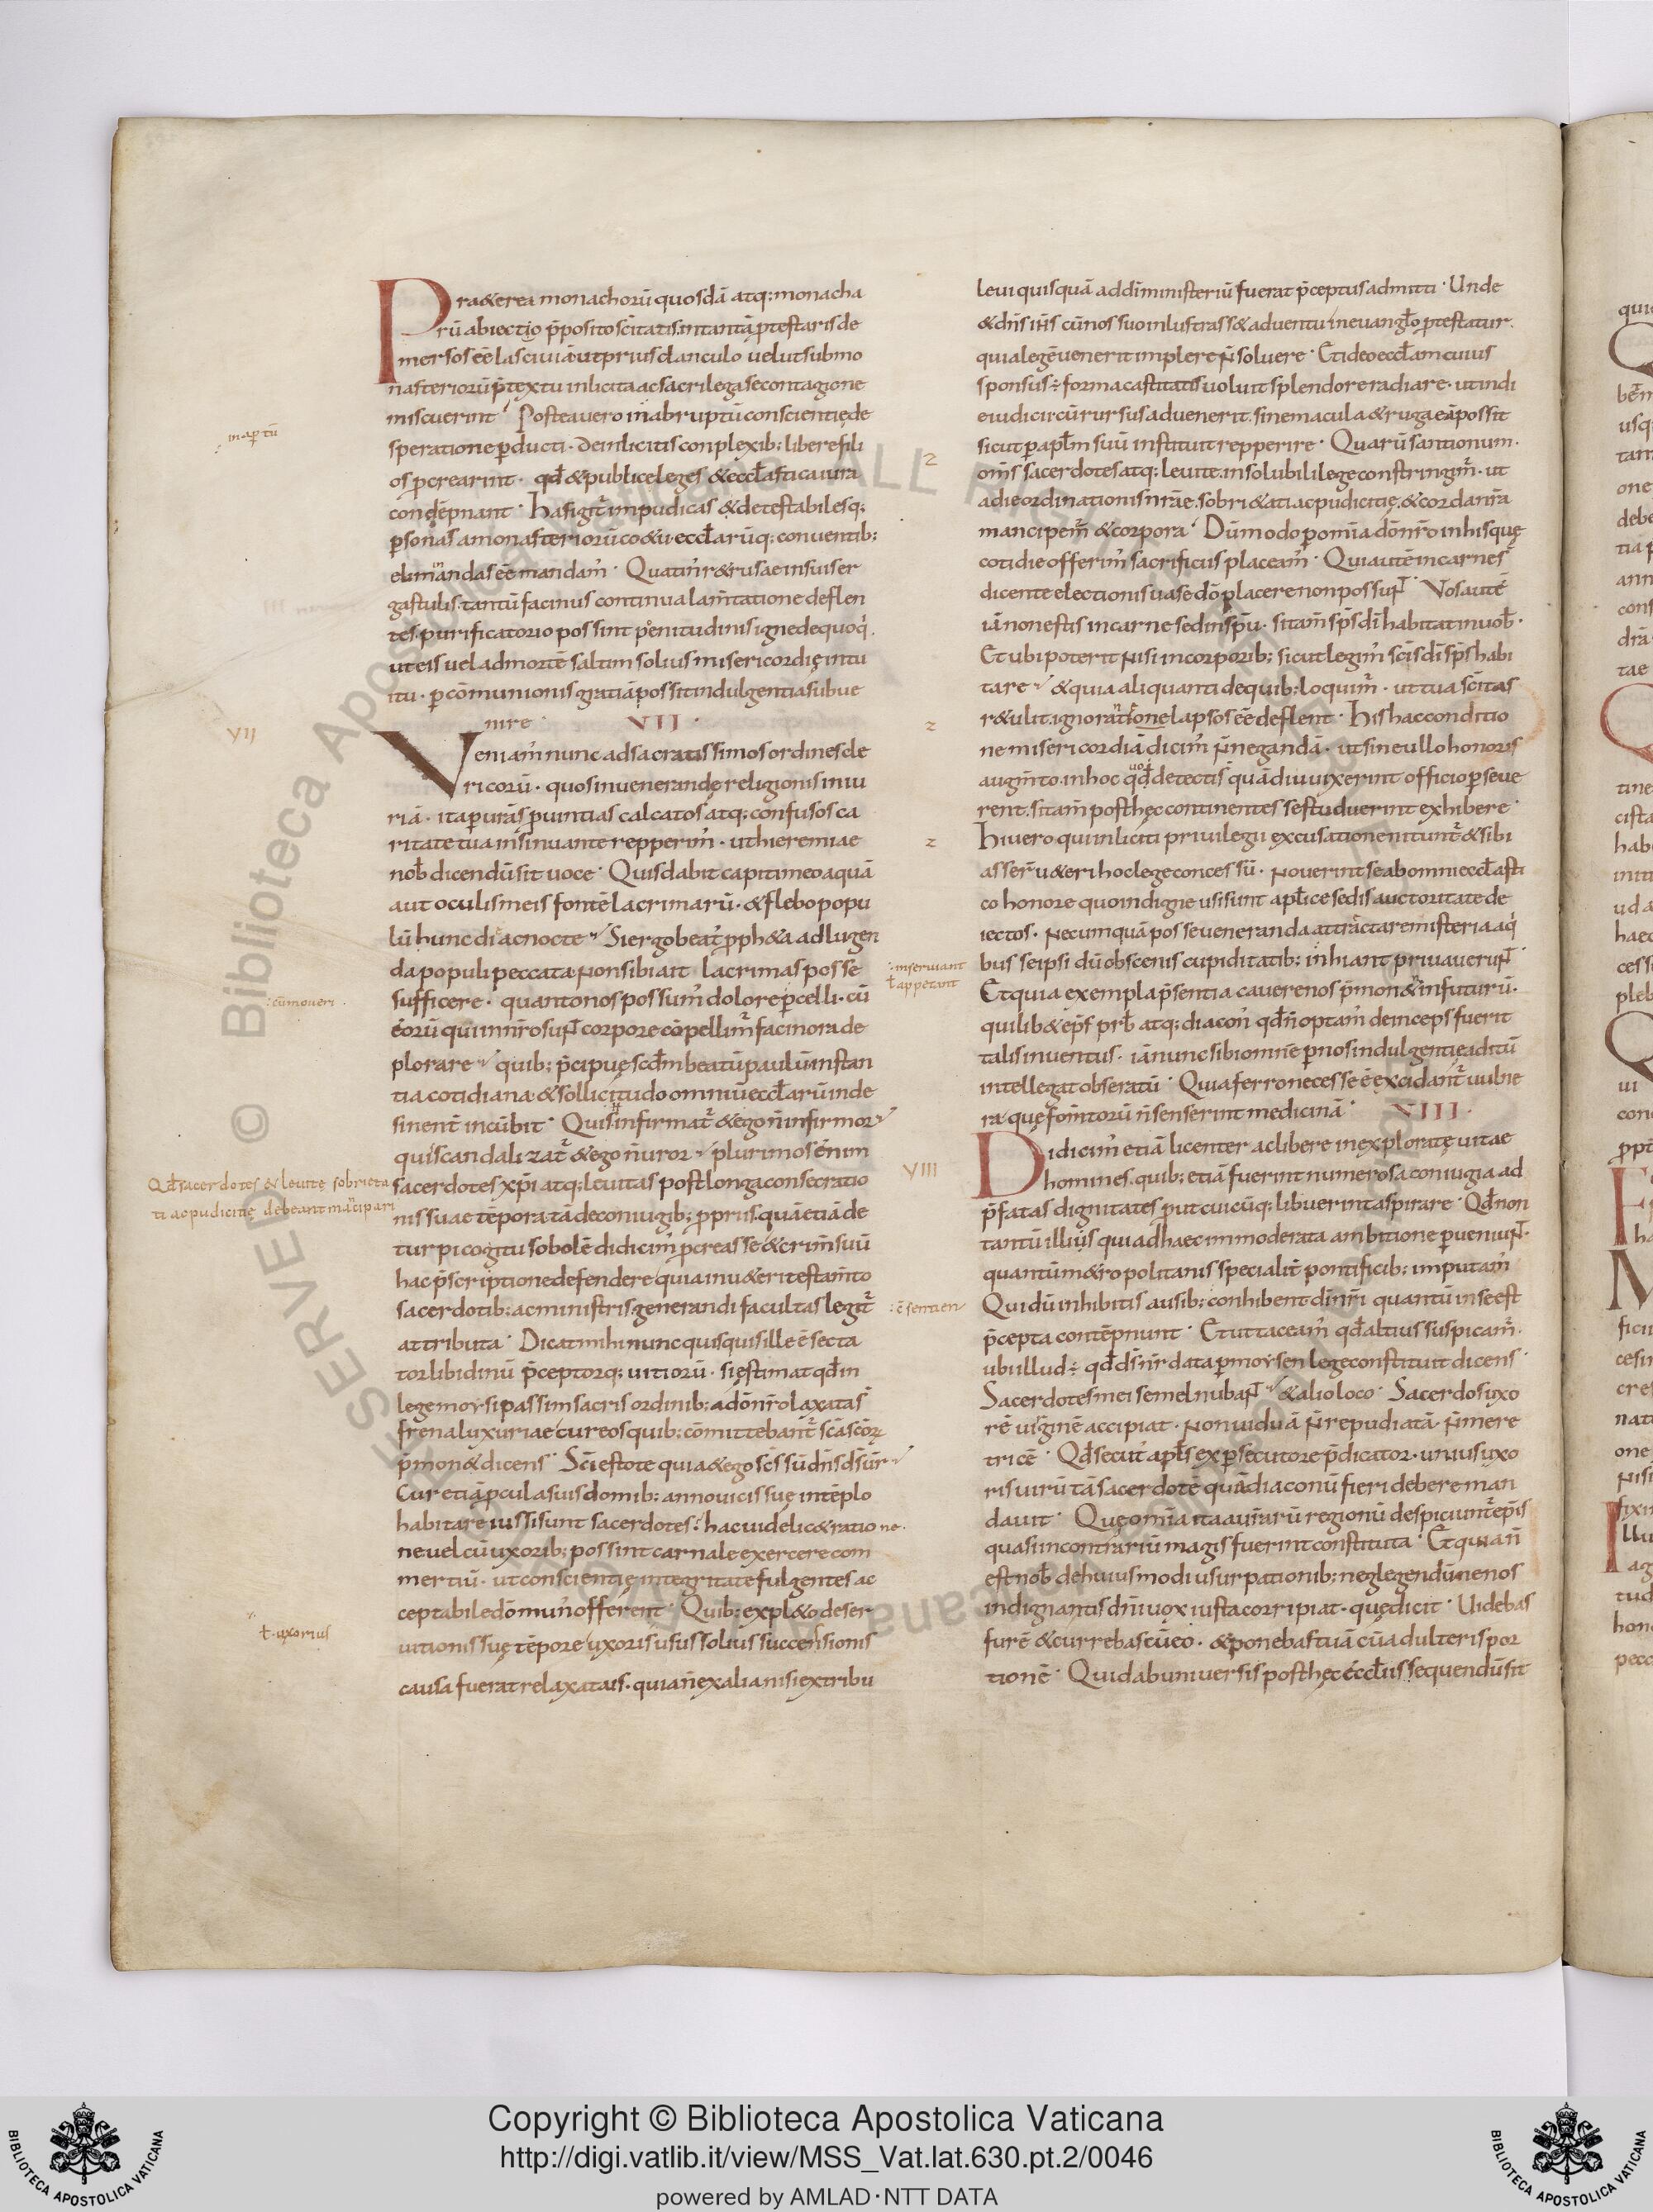 Pra&erea monachorū quosdā atq; monacha
rū abiecto p̄posito sc̄itatis. in tantā ptestaris de
mersos eē lasciuiā ut prius clanculo uelut sub mo
nasteriorū p̄textu inlicita ac sacrilega se contagione
miscuerint. Postea uero in abruptū conscientię de
speratione perducti. De inlicitis conplexib; libere fili
os pcrearint. qđ & publice leges & eccl̄astica iura
condēpnant. Has igit̄ impudicas & detestabilesq;
psonas a monasteriorū co&u eccl̄arūq; conuentib;
eliminandas eē mandam̄. Quatin̄ r&rusae in suis er
gastulis. tantū facinus continua lam̄tatione deflen
tes. purificatorio possint pęnitudinis igne dequoq̄.
ut eis uel ad mortē saltim solius misericordię intu
itu. p cōmunionis gratiā possit indulgentia subue
nire. VII.
Veniam̄ nunc ad sacratissimos ordines cle
ricorū. quos in uenerandę religionis iniu
riā. ita p uras puintias calcatos atq; confusos ca
ritate tua insinuante repperim̄. ut hieremiae
nob̄ dicendū sit uoce. Quis dabit capiti meo aquā
aut oculis meis fontē lacrimarū. & flebo popu
lū hunc die ac nocte. Si ergo beat̄ pph&a ad lugen
da populi peccata non sibi ait lacrimas posse
sufficere. quanto nos possum̄ dolore pcelli. cū
eorū qui in nr̄o sun̄t corpore cōpellim̄ facinora de
plorare. quib; p̄cipuę scd̄m beatū paulū instan
tia cotidiana & sollicitudo omniū eccl̄arū inde
sinent̄ incūbit. Quis infirmat̄ & ego n̄ infirmor
quis candalizat̄ & ego n̄ uror. plurimos enim
sacerdotes xp̄i atq; leuitas post longa consecratio
nis suae tēpora tā de coniugib; ppriis. quā etiā de
turpi cogitu sobolē didicim̄ pcreasse & crim̄ suū
hac p̄scriptione defendere quia in u&eri testam̄to
sacerdotib; ac ministris generandi facultas legit̄
attributa. Dicat mihi nunc quisquis ille ē secta
tor libidinū p̄ceptorq; uitiorū. si ęstimat qđ in
lege moysi passim sacris ordinib; a dōnr̄o laxatas
frena luxuriae cur eos quib; cōmittebant̄ sc̄a sc̄orū
p̄mon& dicens. Sc̄i estote quia & ego sc̄s sū dn̄s ds̄ ur̄
Cur etiā pcul a suis domib; anno uicis suę in tēplo
habitare iussi sunt sacerdotes: hac uidelic& ratione.
ne uel cū uxorib; possint carnale exercere com
mertiū. ut conscientię integritate fulgentes ac
ceptabile dō mun̄ offerent. Quib; expl&o deser
uitionis suę tēpore uxoris usus solius successionis
causa fuerat relaxatais. quia n̄ ex alia nisi ex tribu
in aptū
VII
: cū moueri.
Qđ sacerdotes & leuitę sobrieta
ti ac pudicitię debeant mancipari
ł. uxorius
leui quisquā ad dī ministeriū fuerat p̄ceptus admitti. Unde
& dn̄s ihs̄ cū nos suo inlustrass& aduentu in euanglo ptestatur.
quia legē uenerit implere n̄ soluere. Et ideo eccl̄am cuius
sponsus ÷ forma castitatis uoluit splendore radiare. ut in di
e iudicii cū rursus aduenerit. sine macula & ruga eā possit
sicut p apl̄m suū instituit repperire. Quarū santionum.
om̄s sacerdotes atq; leuite. insolubili lege constringim̄. ut
a die ordinationis nr̄ae. sobri&ati ac pudicitię. & corda nr̄a
mancipem̄ & corpora. Dūmodo p om̄ia dō nr̄o in his quę
cotidie offerim̄ sacrificiis placeam̄. Qui autē in carne s̄
dicente electionis uase dō placere non possun̄t. Vos autē
iā non estis in carne sed in sp̄u. si tam̄ sp̄s dī habitat in uob̄.
Et ubi poterit nisi in corporib; sicut legim̄ sc̄is dī sp̄s habi
tare. & quia aliquanti de quib; loquim̄. ut tua sc̄itas
r&ulit. ignoratione lapsos eē deflent. His hac conditio
ne misericordiā dicim̄ n̄ negandā. ut sine ullo honoris
augm̄to. in hoc quod detectis quādiu uixerint officio pseue
rent. si tam̄ posthęc continentes se studuerint exhibere.
Hi uero qui inliciti priuilegii excusatione nitunt̄ & sibi
asser̄ u&eri hoc lege concessū. Nouerint se ab omni eccl̄asti
co honore quo indigne usi sunt apl̄ice sedis auctoritate de
iectos. Nec umquā posse ueneranda attractare misteria a q̄
bus se ipsi dū obscenis cupiditatib; inhiant priuauerun̄t.
Et quia exempla p̄sentia cauere nos p̄mon& in futurū.
quilib& ep̄s prb̄ atq; diacon̄ qđ n̄ optam̄ deinceps fuerit
talis inuentus. iā nunc sibi omnē p nos indulgentię aditū
intellegat obseratū. Quia ferro necesse ē excidant̄ uulne
ra quę fom̄torū n̄ senserint medicinā. VIII.
Didicim̄ etiā licenter ac libere inexploratę uitae
homines. quib; etiā fuerint numerosa coniugia ad
p̄fatas dignitates put cuicūq; libuerint aspirare. Qđ non
tantū illius qui ad haec immoderata ambitione pueniun̄t.
quantū m&ropolitanis specialit̄ pontificib; imputam̄
Qui dū inhibitis ausib; conhibent dī nr̄i quantū in se est
p̄cepta contēpnunt. Et ut taceam̄ qđ altius suspicam̄.
ubi illud ÷ qđ ds̄ nr̄ data p moysen lege constituit dicens
Sacerdotes mei semel nuban̄t & alio loco. Sacerdos uxo
rē uirginē accipiat. non uiduā n̄ repudiatā n̄ mere
tricē. Qđ secut̄ apl̄s ex psecutore p̄dicator. unius uxo
ris uirū tā sacerdotē quā diaconū fieri debere man
dauit. Quę om̄ia ita a ur̄arū regionū despiciunt̄ ep̄is
quasi in contrariū magis fuerint constituta. Et quia n̄
est nob̄ de huiusmodi usurpationib; neglegendū ne nos
indignantis dn̄i uox iusta corripiat. quę dicit. Uidebas
furē & currebas cū eo. & ponebas tuā cū adulteris por
tionē. Quid ab uniuersis posthęc eccl̄iis sequendū sit
: inseruiant
ł appetant
VIII
: ē sentien
Copyright © Biblioteca Apostolica Vaticana
http://digi.vatlib.it/view/MSS_Vat.lat.630.pt.2/0046
powered by AMLAD·NTT DATA
BIBLIOTECA APOSTOLICA VATICANA
BIBLIOTECA APOSTOLICA VATICANA